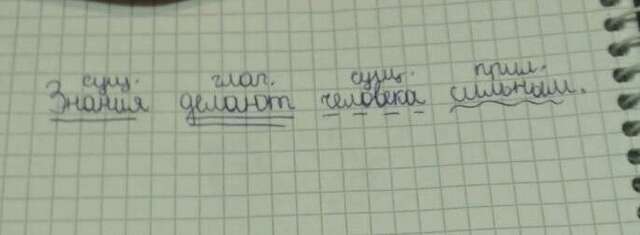 сущ. глаг. сущ. прил.
Знания делают человека сильным.